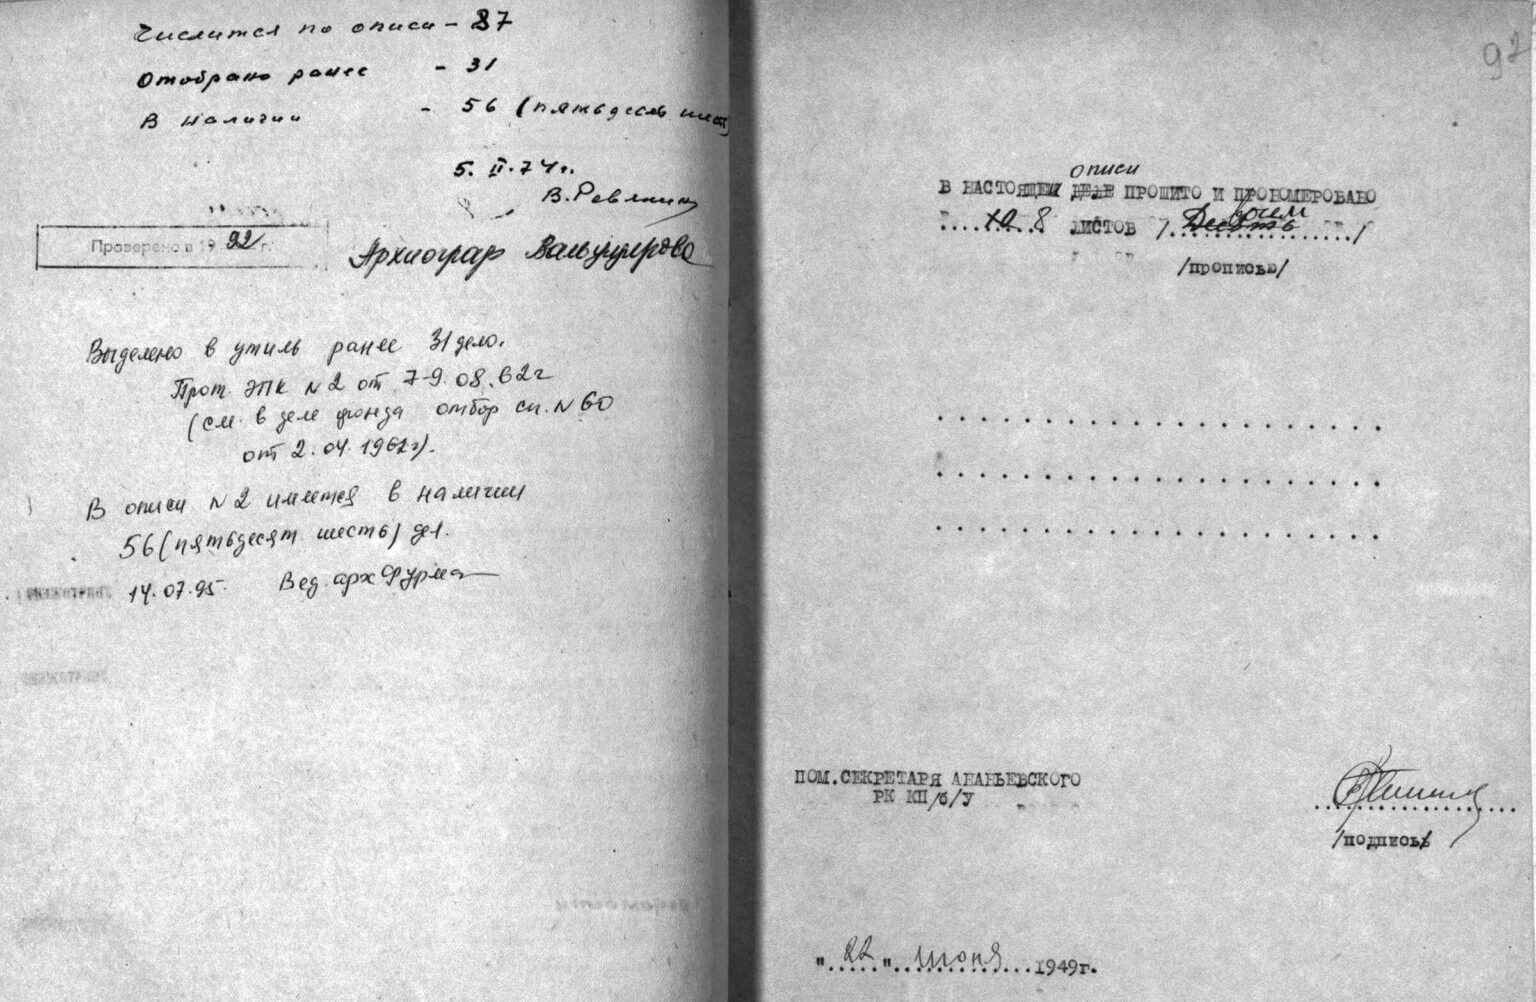 Числится по описи - 87
Отобрано ранее - 31
В наличии - 56 (пятьдесят шесть
5. II. 74 г.
В. Ревякин
Проверено в 1992 г.
Археограф
Выделено в утиль ранее 31 дело.
Прот. ЭПК N 2 от 7-9.08.62г
(см. в деле фонда отбор сп. N 60
от 2.04.1962г).
В описи N 2 имеется в наличии
56 (пятьдесят шесть) дел.
14.07.95. Вед. арх Фурма
92
описи
В НАСТОЯЩЕМ ДЕЛЕ ПРОШИТО И ПРОНОМЕРОВАНО
10 8 ЛИСТОВ / Десять восем /
/прописью/
ПОМ.СЕКРЕТАРЯ АНАНЬЕВСКОГО
РК КП/б/У
/подпись/
"22" июня 1949г.